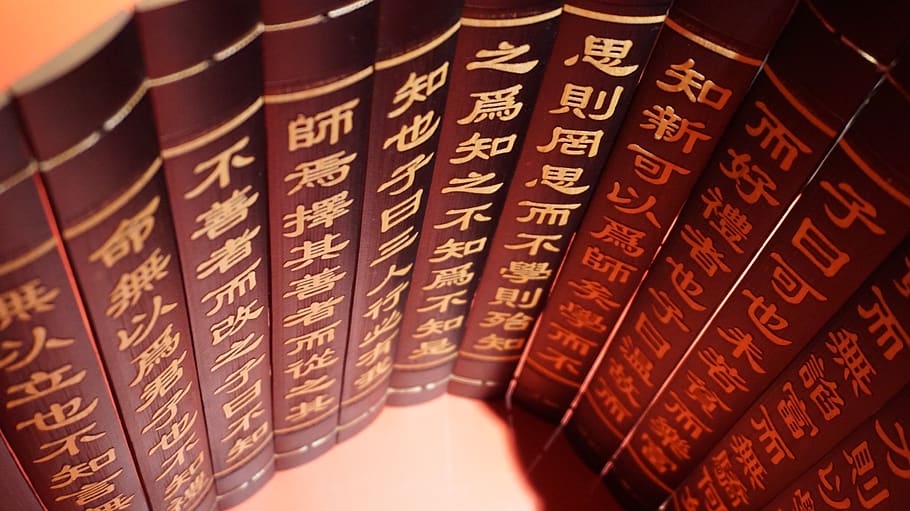 則以
貧而無諂富而無驕何
子曰可也未若貧而樂富
而好禮者也子曰溫故而
知新可以爲師矣學而不
思則罔思而不學則殆知
之爲知之不知爲不知是
知也子曰三人行必有我
師焉擇其善者而從之其
不善者而改之子曰不知
命無以爲君子也不知禮
無以立也不知言無